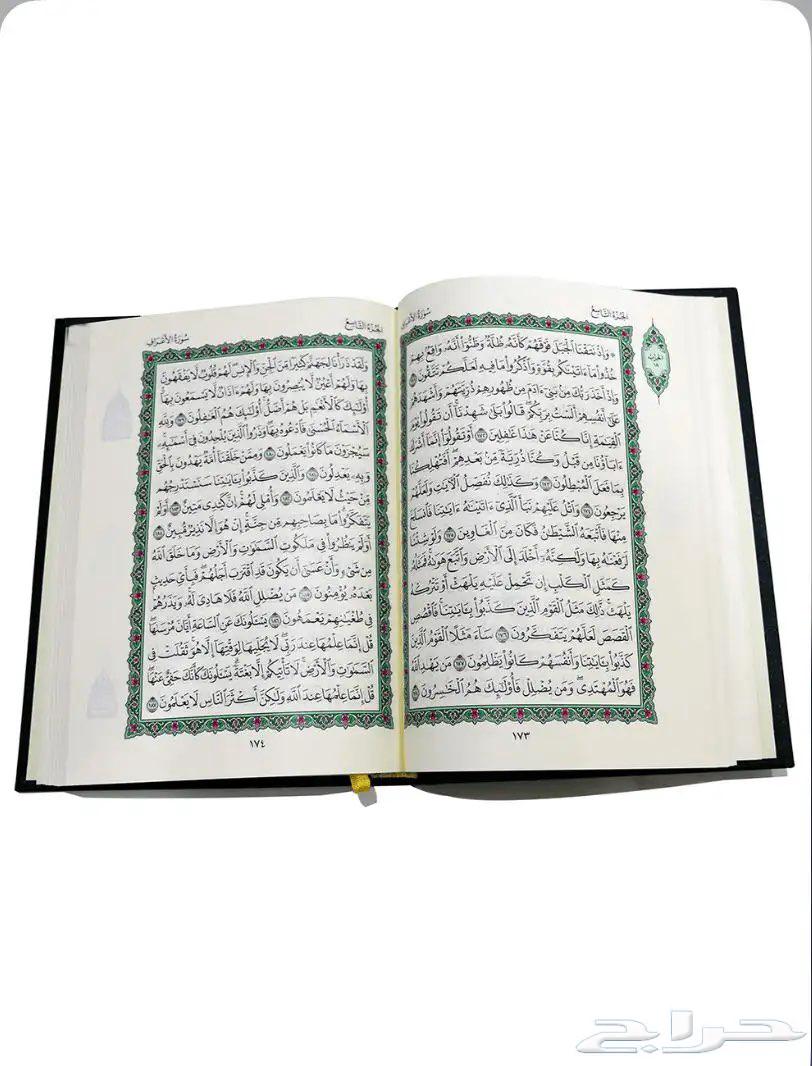 الجزء التاسع
سورة الأعراف
۞ وَإِذۡ نَتَقۡنَا ٱلۡجَبَلَ فَوۡقَهُمۡ كَأَنَّهُۥ ظُلَّةٞ وَظَنُّوٓاْ أَنَّهُۥ وَاقِعُۢ بِهِمۡ
خُذُواْ مَآ ءَاتَيۡنَٰكُم بِقُوَّةٖ وَٱذۡكُرُواْ مَا فِيهِ لَعَلَّكُمۡ تَتَّقُونَ ١٧١
وَإِذۡ أَخَذَ رَبُّكَ مِنۢ بَنِيٓ ءَادَمَ مِن ظُهُورِهِمۡ ذُرِّيَّتَهُمۡ وَأَشۡهَدَهُمۡ
عَلَىٰٓ أَنفُسِهِمۡ أَلَسۡتُ بِرَبِّكُمۡۖ قَالُواْ بَلَىٰ شَهِدۡنَآۚ أَن تَقُولُواْ يَوۡمَ
ٱلۡقِيَٰمَةِ إِنَّا كُنَّا عَنۡ هَٰذَا غَٰفِلِينَ ١٧٢ أَوۡ تَقُولُوٓاْ إِنَّمَآ أَشۡرَكَ
ءَابَآؤُنَا مِن قَبۡلُ وَكُنَّا ذُرِّيَّةٗ مِّنۢ بَعۡدِهِمۡۖ أَفَتُهۡلِكُنَا
بِمَا فَعَلَ ٱلۡمُبۡطِلُونَ ١٧٣ وَكَذَٰلِكَ نُفَصِّلُ ٱلۡأٓيَٰتِ وَلَعَلَّهُمۡ
يَرۡجِعُونَ ١٧٤ وَٱتۡلُ عَلَيۡهِمۡ نَبَأَ ٱلَّذِيٓ ءَاتَيۡنَٰهُ ءَايَٰتِنَا فَٱنسَلَخَ
مِنۡهَا فَأَتۡبَعَهُ ٱلشَّيۡطَٰنُ فَكَانَ مِنَ ٱلۡغَاوِينَ ١٧٥ وَلَوۡ شِئۡنَا
لَرَفَعۡنَٰهُ بِهَا وَلَٰكِنَّهُۥٓ أَخۡلَدَ إِلَى ٱلۡأَرۡضِ وَٱتَّبَعَ هَوَىٰهُۚ فَمَثَلُهُۥ
كَمَثَلِ ٱلۡكَلۡبِ إِن تَحۡمِلۡ عَلَيۡهِ يَلۡهَثۡ أَوۡ تَتۡرُكۡهُ
يَلۡهَثۚ ذَّٰلِكَ مَثَلُ ٱلۡقَوۡمِ ٱلَّذِينَ كَذَّبُواْ بِـَٔايَٰتِنَاۚ فَٱقۡصُصِ
ٱلۡقَصَصَ لَعَلَّهُمۡ يَتَفَكَّرُونَ ١٧٦ سَآءَ مَثَلًا ٱلۡقَوۡمُ ٱلَّذِينَ
كَذَّبُواْ بِـَٔايَٰتِنَا وَأَنفُسَهُمۡ كَانُواْ يَظۡلِمُونَ ١٧٧ مَن يَهۡدِ ٱللَّهُ
فَهُوَ ٱلۡمُهۡتَدِيۖ وَمَن يُضۡلِلۡ فَأُوْلَٰٓئِكَ هُمُ ٱلۡخَٰسِرُونَ ١٧٨
١٧٣
الجزء التاسع
سورة الأعراف
وَلَقَدۡ ذَرَأۡنَا لِجَهَنَّمَ كَثِيرٗا مِّنَ ٱلۡجِنِّ وَٱلۡإِنسِۖ لَهُمۡ قُلُوبٞ لَّا يَفۡقَهُونَ
بِهَا وَلَهُمۡ أَعۡيُنٞ لَّا يُبۡصِرُونَ بِهَا وَلَهُمۡ ءَاذَانٞ لَّا يَسۡمَعُونَ بِهَآۚ
أُوْلَٰٓئِكَ كَٱلۡأَنۡعَٰمِ بَلۡ هُمۡ أَضَلُّۚ أُوْلَٰٓئِكَ هُمُ ٱلۡغَٰفِلُونَ ١٧٩ وَلِلَّهِ
ٱلۡأَسۡمَآءُ ٱلۡحُسۡنَىٰ فَٱدۡعُوهُ بِهَاۖ وَذَرُواْ ٱلَّذِينَ يُلۡحِدُونَ فِيٓ أَسۡمَٰٓئِهِۦۚ
سَيُجۡزَوۡنَ مَا كَانُواْ يَعۡمَلُونَ ١٨٠ وَمِمَّنۡ خَلَقۡنَآ أُمَّةٞ يَهۡدُونَ بِٱلۡحَقِّ
وَبِهِۦ يَعۡدِلُونَ ١٨١ وَٱلَّذِينَ كَذَّبُواْ بِـَٔايَٰتِنَا سَنَسۡتَدۡرِجُهُم
مِّنۡ حَيۡثُ لَا يَعۡلَمُونَ ١٨٢ وَأُمۡلِي لَهُمۡۚ إِنَّ كَيۡدِي مَتِينٌ ١٨٣ أَوَلَمۡ
يَتَفَكَّرُواْۗ مَا بِصَاحِبِهِم مِّن جِنَّةٍۚ إِنۡ هُوَ إِلَّا نَذِيرٞ مُّبِينٌ ١٨٤
أَوَلَمۡ يَنظُرُواْ فِي مَلَكُوتِ ٱلسَّمَٰوَٰتِ وَٱلۡأَرۡضِ وَمَا خَلَقَ ٱللَّهُ
مِن شَيۡءٖ وَأَنۡ عَسَىٰٓ أَن يَكُونَ قَدِ ٱقۡتَرَبَ أَجَلُهُمۡۖ فَبِأَيِّ حَدِيثِۭ
بَعۡدَهُۥ يُؤۡمِنُونَ ١٨٥ مَن يُضۡلِلِ ٱللَّهُ فَلَا هَادِيَ لَهُۥۚ وَيَذَرُهُمۡ
فِي طُغۡيَٰنِهِمۡ يَعۡمَهُونَ ١٨٦ يَسۡـَٔلُونَكَ عَنِ ٱلسَّاعَةِ أَيَّانَ مُرۡسَىٰهَاۖ
قُلۡ إِنَّمَا عِلۡمُهَا عِندَ رَبِّيۖ لَا يُجَلِّيهَا لِوَقۡتِهَآ إِلَّا هُوَۚ ثَقُلَتۡ فِي
ٱلسَّمَٰوَٰتِ وَٱلۡأَرۡضِۚ لَا تَأۡتِيكُمۡ إِلَّا بَغۡتَةٗۗ يَسۡـَٔلُونَكَ كَأَنَّكَ حَفِيٌّ عَنۡهَاۖ
قُلۡ إِنَّمَا عِلۡمُهَا عِندَ ٱللَّهِ وَلَٰكِنَّ أَكۡثَرَ ٱلنَّاسِ لَا يَعۡلَمُونَ ١٨٧
١٧٤
حراج